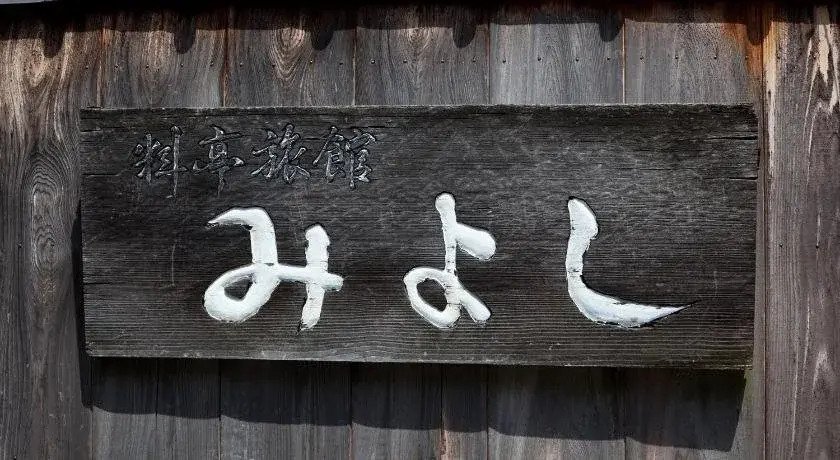 料亭旅館
みよし